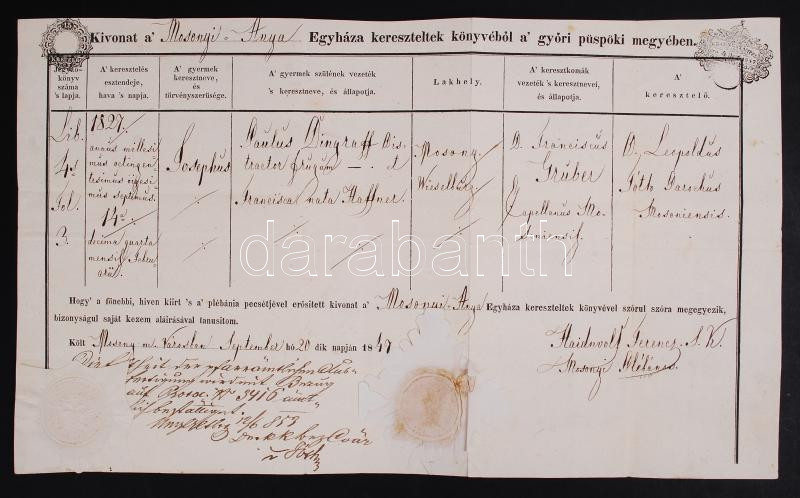 Kivonat a' Mosonyi Anya Egyháza kereszteltek könyvéből a' győri püspöki megyében.
Jegyzőkönyv száma 's lapja.
A' keresztelés esztendeje, hava 's napja.
A' gyermek keresztneve, és törvényszerűsége.
A' gyermek szüleinek vezeték 's keresztneve, és állapotja.
Lakhely.
A' keresztkomák vezeték 's keresztnevei, és állapotja.
A' keresztelő.
Lib. 4. Fol. 3.
1827
annus millesimus octingentesimus vigesimus septimus.
14a
decima quarta mensis Februarii.
Josephus
Paulus Dingraff Distractor frugum
Francisca nata Haffner.
Mosony
Wieselburg
D. Franciscus Gruber
Capellanus Mosoniensis.
D. Leopoldus Tóth Parochus Mosoniensis.
Hogy' a főnebbi, hiven kiirt 's a' plébánia pecsétjével erősitett kivonat a' Mosonyi Anya Egyháza kereszteltek könyvével szórul szóra megegyezik,
bizonyságul saját kezem aláirásával tanusitom.
Költ Mosony m. Városban September hó 20 dik napján 1847
Haidnvolf Ferencz
Mosonyi Plébános
auf 3416
853
darabanth